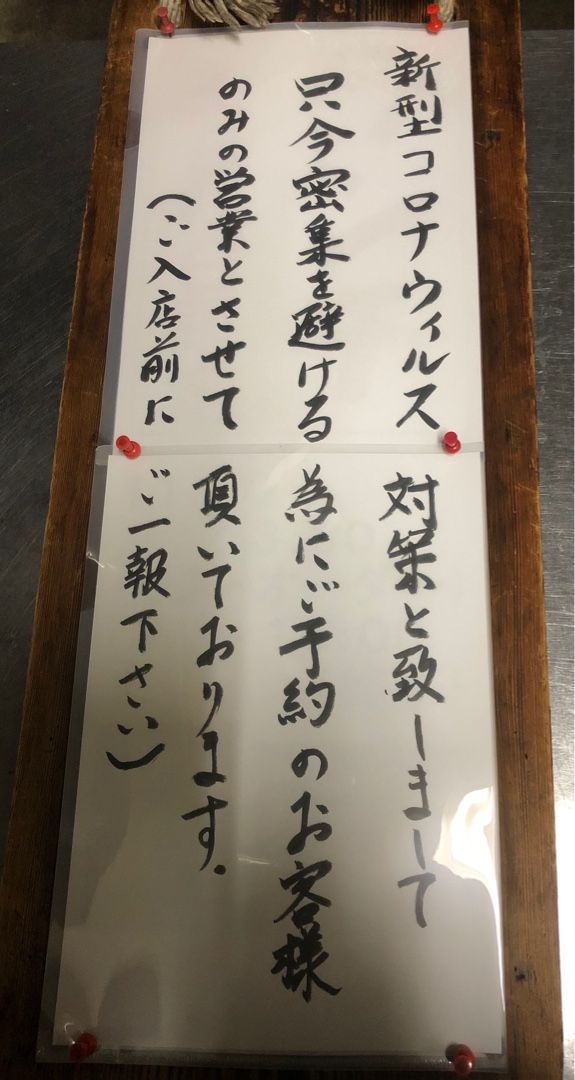 新型コロナウィルス対策と致しまして
只今密集を避ける為にご予約のお客様
のみの営業とさせて頂いております.
(ご入店前にご一報下さい)